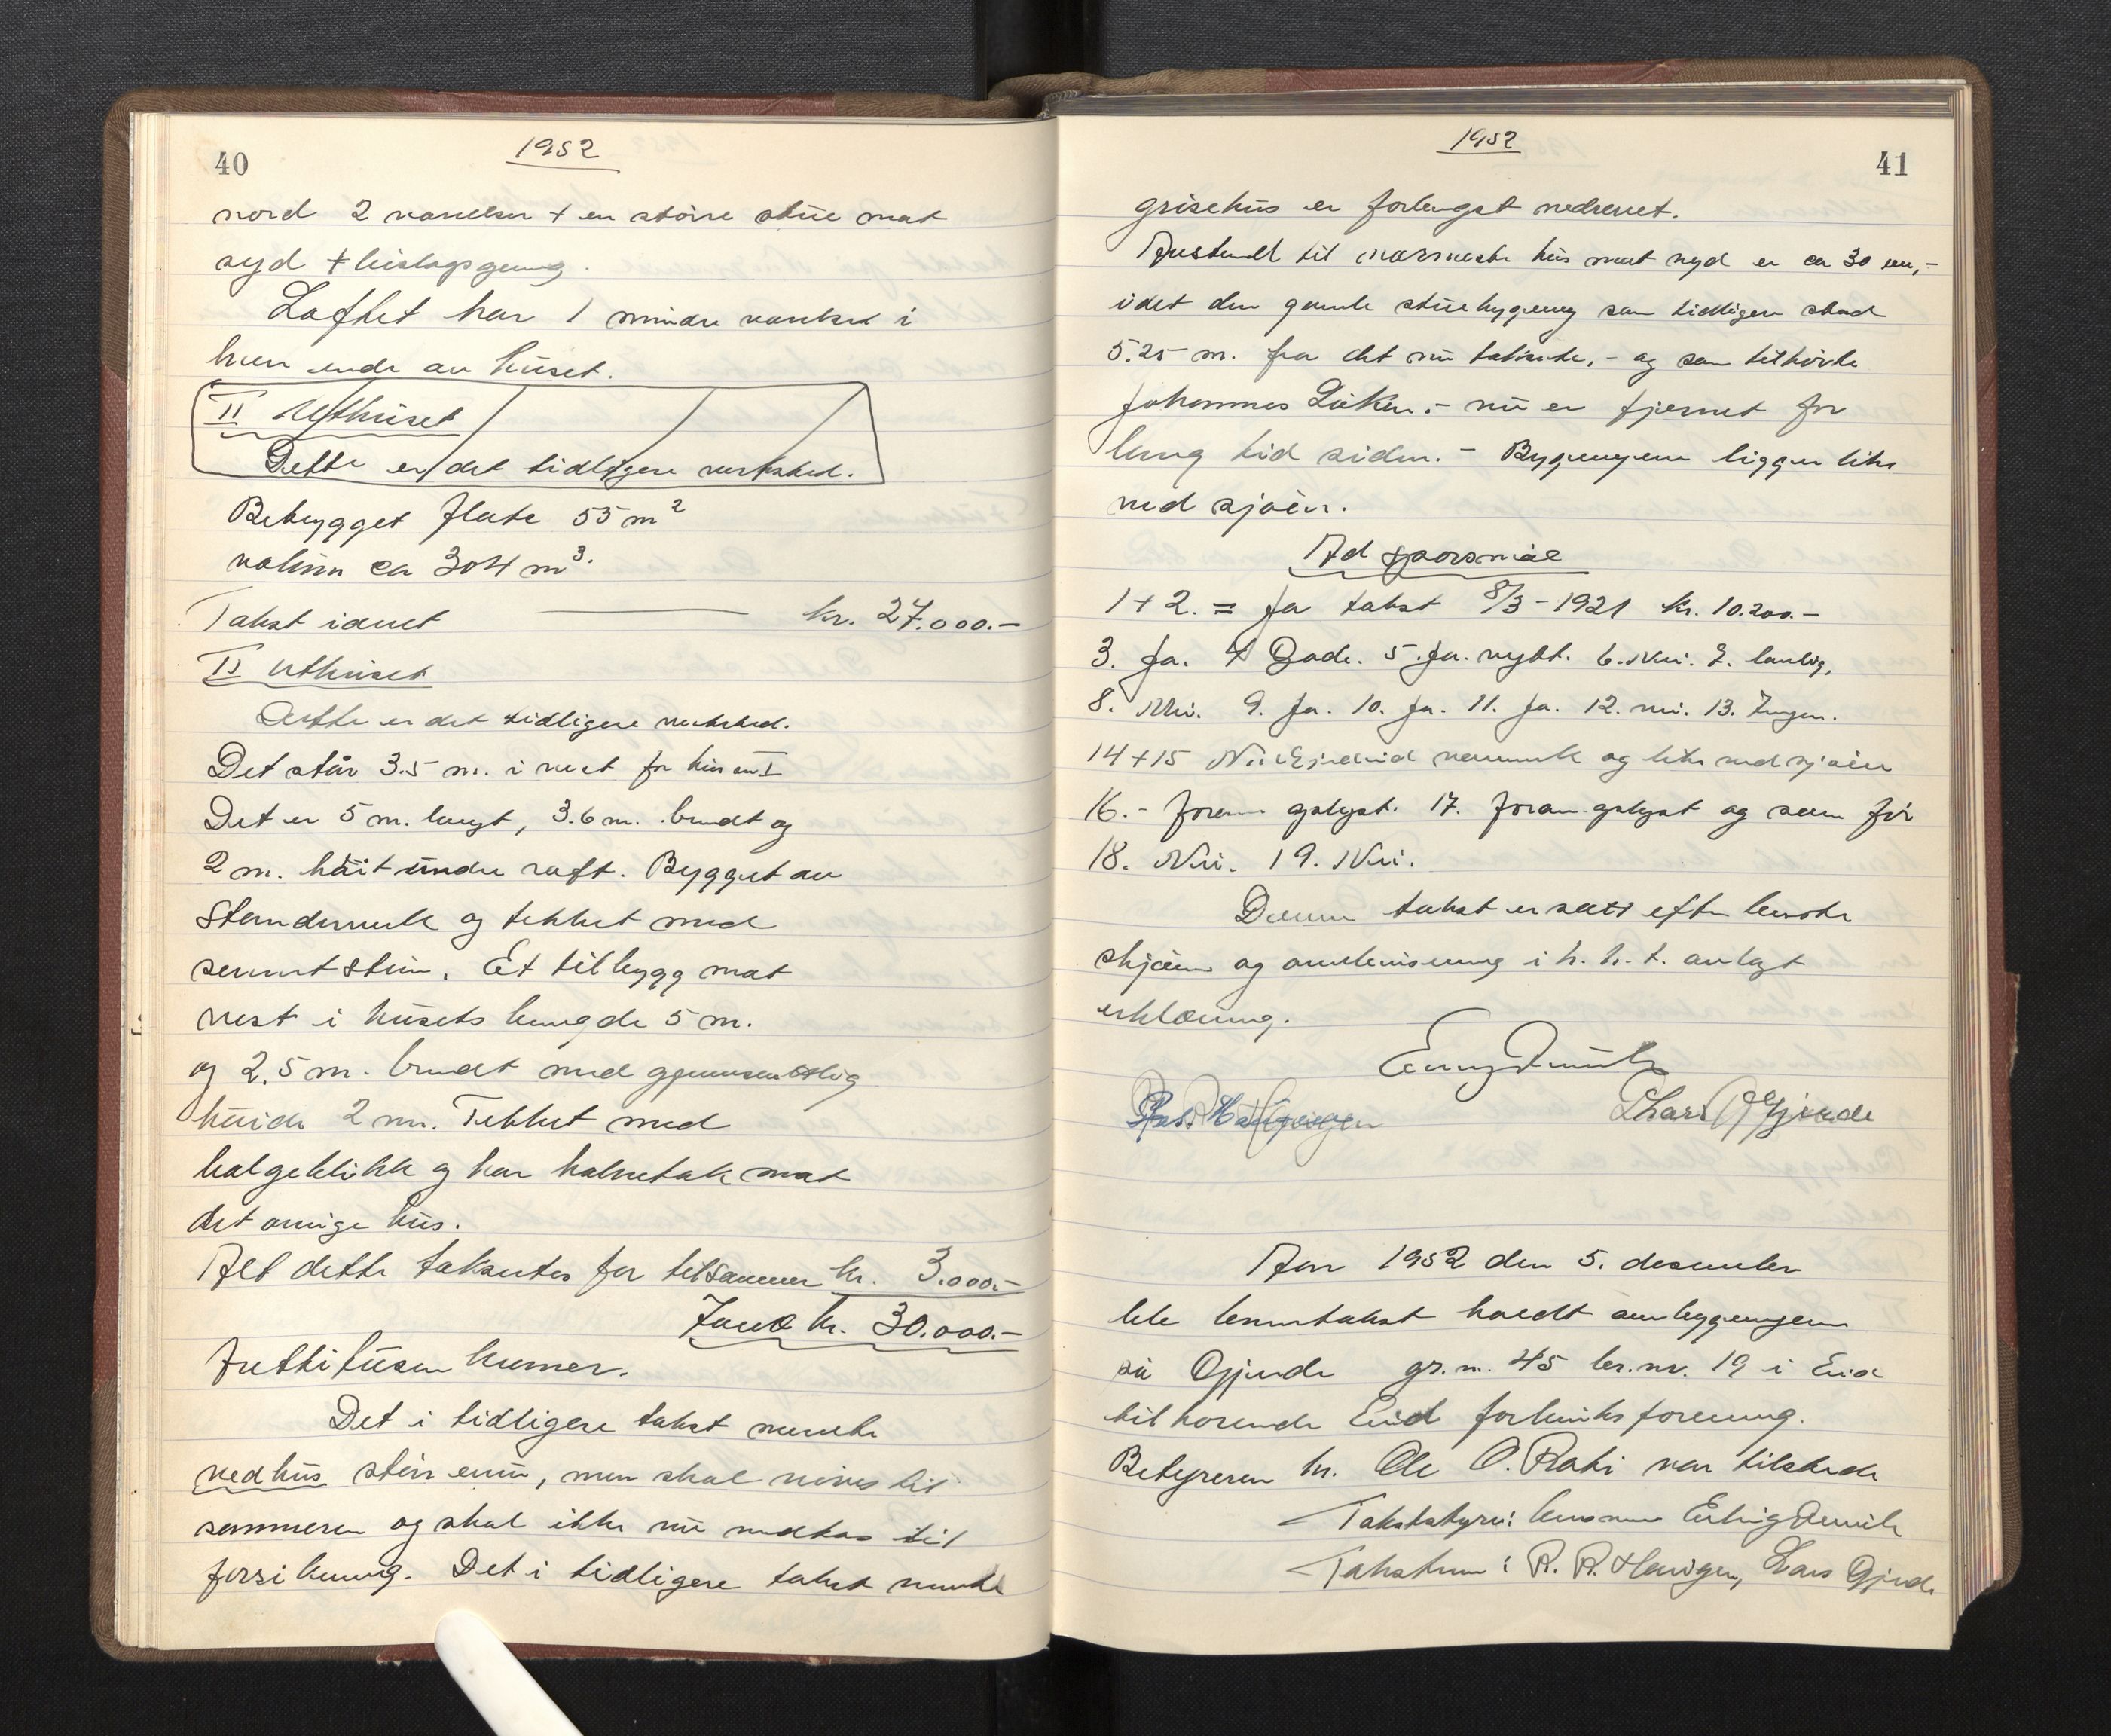 40
1952
nord 2 varelser + en større stue mot
syd + bislagsgang.
Loftet har 1 mindre varelse i
hver ende av huset.
II Uthuset
Dette er det tidligere verksted.
Bebygget flate 55 m²
volum ca 304 m³.
Takst idnet kr. 27.000.-
II Uthuset
Dette er det tidligere verksted.
Det står 3.5 m. i vest for hus I
Det er 5 m. langt, 3.6 m. bredt og
2 m. höit under raft. Bygget av
Stenderverk og tekket med
sementstein. Et tilbygg mot
vest i husets lengde 5 m.
og 2.5 m. bredt med gjennemsnittlig
høide 2 m. Tekket med
bølgeblikk og har halvetak mot
det övrige hus.
Alt dette takseres for tilsammen kr. 3.000.-
Sum kr. 30.000.-
Trettitusen kroner.
Det i tidligere takst nevnte
vedhus står ennu, men skal rives til
sommeren og skal ikke nu medtas til
forsikring. Det i tidligere takst nevnte
1952
41
grisehus er forlengst nedrevet.
Avstand til nærmeste hus mot syd er ca 30 m,-
idet den gamle stuebygning som tidligere stod
5.25 m. fra det nu takserte, - og som tilhörte
Johannes - nu er fjernet for
lang tid siden. - Bygningene ligger like
ved sjøen.
Ad spørsmål
1+2. = Ja takst 8/3-1921 kr. 10.200.-
3. Ja. 4 Gode. 5. Ja. nytt. 6. Nei. 7. lovlig,
8. Nei. 9. Ja. 10. Ja. 11. Ja. 12. nei. 13. Ingen.
14+15 Nei og like ved sjøen
16. - foran oplyst. 17. foran oplyst og som før
18. Nei. 19. Nei.
Denne takst er satt efter beste
skjønn og overbevisning i h. h. t. avlagt
erklæring.
Lars Gjerde
Aar 1952 den 5. desember
ble branntakst holdt over bygningen
på Gjerde gr.n. 45 br.nr. 19 i Eid
tilhørende Eid forbruksforening.
Bestyreren hr. Ole O. var tilstede
Takststyrer: lensmann Erling
Takstmenn: R. R. Haugen, Lars Gjerde